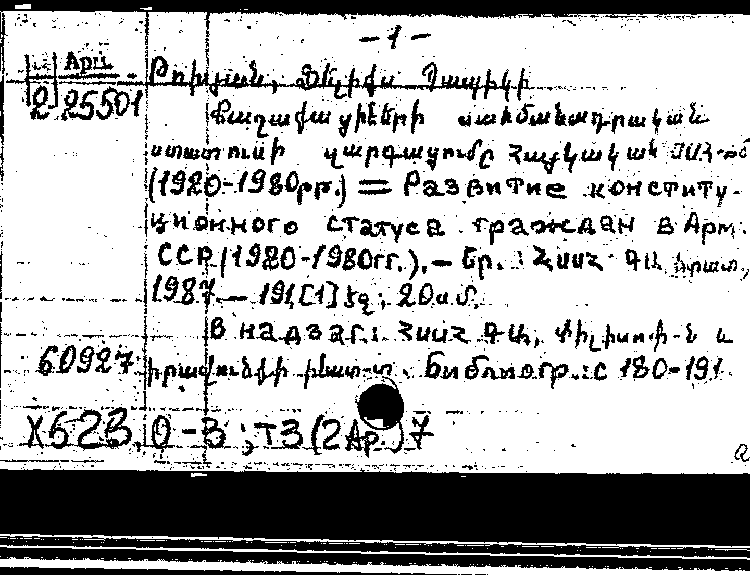 – 1 –
Арм.
2 25501
Քաղաքացիների սահմանադրական
ստատուսի զարգացումը Հայկական ՍՍՀ-ում
(1920-1980թթ.) = Развитие конститу-
ционного статуса граждан в Арм.
ССР (1920-1980гг.). – Եր.: ՀՍՍՀ ԳԱ հրատ.,
1987. – 191,[1] էջ; 20սմ.
В надзаг.: ՀՍՍՀ ԳԱ, Փիլիսոփ-ն և
60927 իրավունքի ինստ-տ. Библиогр.: с 180-191
Х628.0-3; т3(2Ар.)7